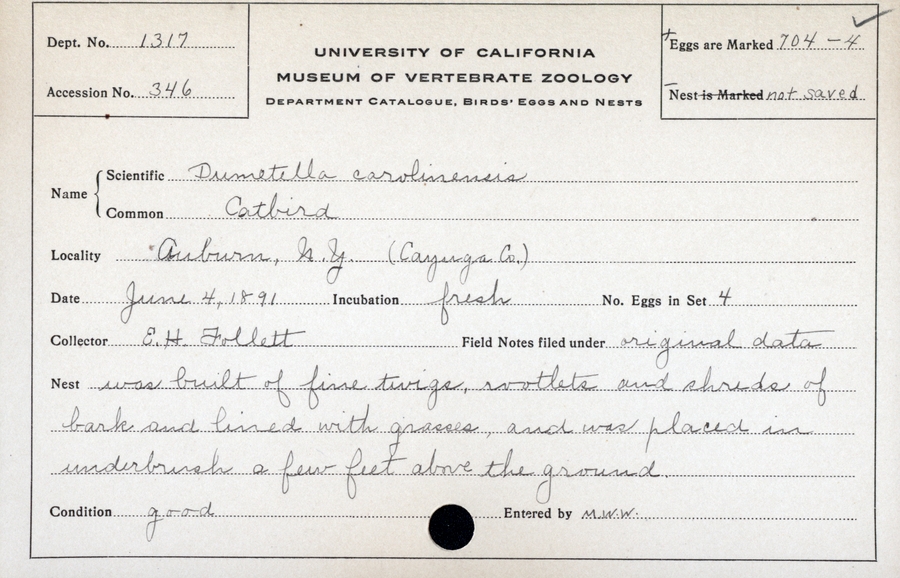 Dept. No. 1317
Accession No. 346
UNIVERSITY OF CALIFORNIA
MUSEUM OF VERTEBRATE ZOOLOGY
DEPARTMENT CATALOGUE, BIRDS' EGGS AND NESTS
+Eggs are Marked 704-4
-Nest is Marked not saved
Name
Scientific Dumetella carolinensis
Common Catbird
Locality Auburn, N.Y. (Cayuga Co.)
Date June 4, 1891 Incubation fresh No. Eggs in Set 4
Collector E.H. Follett Field Notes filed under original data
Nest was built of fine twigs, rootlets and shreds of
bark and lined with grasses, and was placed in
underbrush a few feet above the ground.
Condition good Entered by M.W.W.